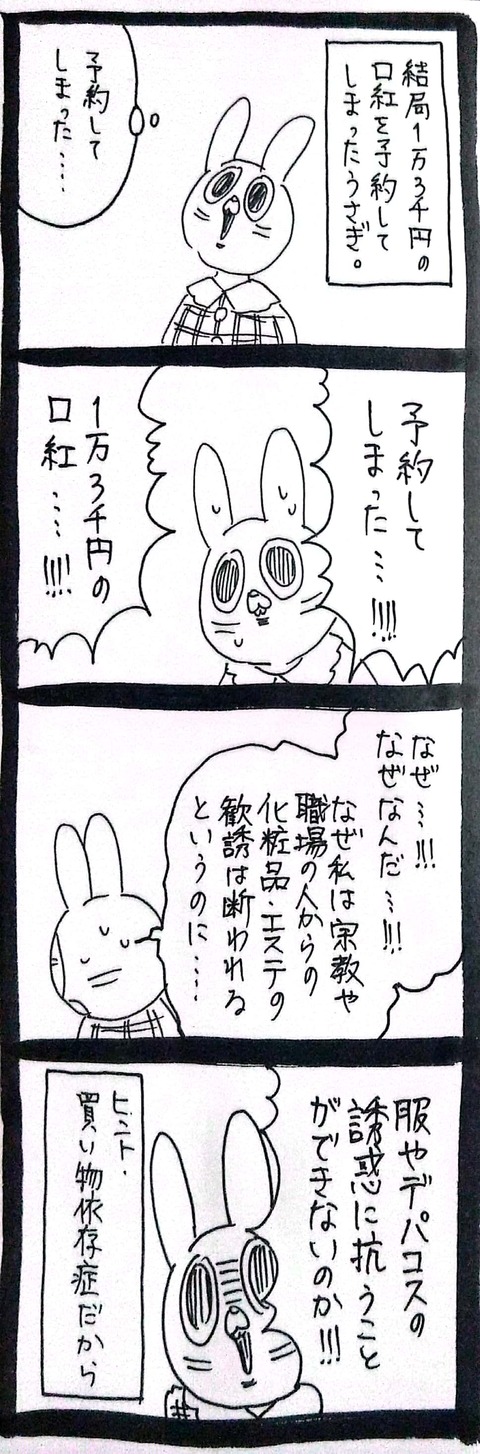 結局1万3千円の
口紅を予約して
しまったうさぎ。
予約して
しまった・・・・
予約して
しまった・・・!!!!
1万3千円の
口紅・・・・!!!!
なぜ・・・!!!
なぜなんだ・・・!!!
なぜ私は宗教や
職場の人からの
化粧品・エステの
歓誘は断われる
というのに・・・・
服やデパコスの
誘惑に抗うこと
ができないのか!!!
ヒント・
買い物依存症だから